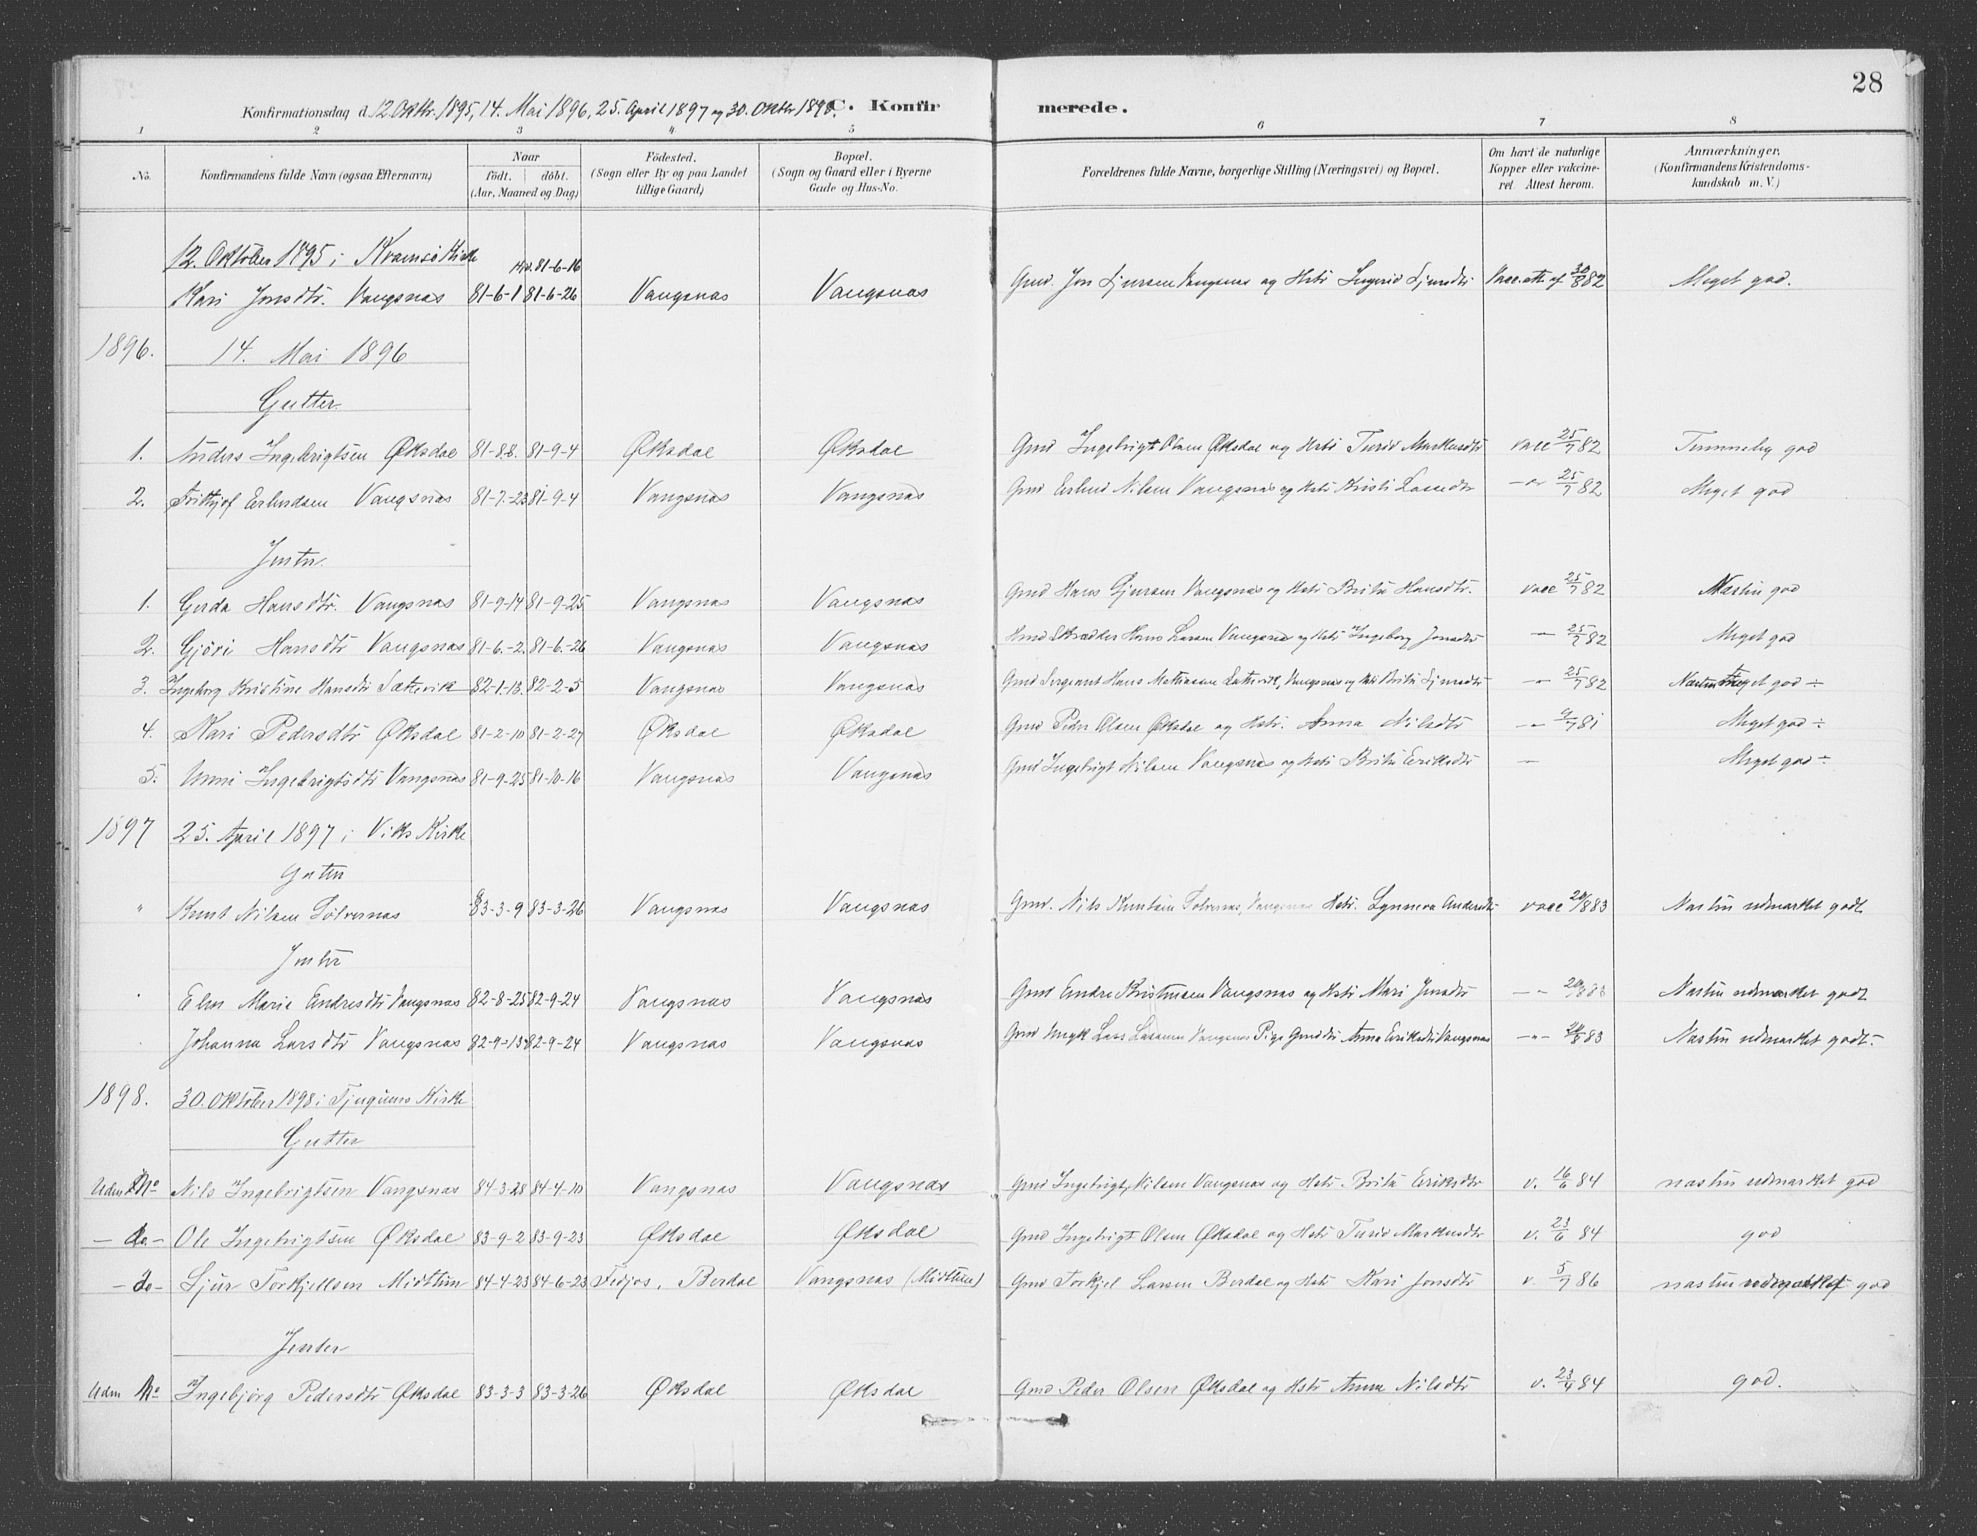 28
Konfirmationsdag d. 12 Oktbr. 1895, 14. Mai 1896, 25. April 1897 og 30. Oktbr 1898. C. Konfirmerede.
1 2 3 4 5 6 7 8
No. Konfirmandens fulde Navn (ogsaa Efternavn) Naar født. døbt. (Aar, Maaned og Dag) Fødested. (Sogn eller By og paa Landet tillige Gaard) Bopæl. (Sogn og Gaard eller i Byerne Gade og Hus-No. Forældrenes fulde Navne, borgerlige Stilling (Næringsvei) og Bopæl. Om havt de naturlige Kopper eller vakcineret. Attest herom. Anmærkninger. (Konfirmandens Kristendomskundskab m. V.)
12. Oktober 1895 i Kvamsø Kirke 81-6-16
Kari Jonsdtr. Vangsnas 81-6-1 81-6-26 Vangsnas Vangsnas Gmd. Jon Sjursen Vangsnas og Hstr Ingerid Sjursdtr Vacc. att. af 30/8 82 Meget god.
1896. 14. Mai 1896
Gutter
1. Anders Ingebrigtsen Øksdal 81-8-8. 81-9-4 Øksdal Øksdal Gmd Ingebrigt Olsen Øksdal og Hstr Turid Markusdtr vacc 25/7 82 Temmelig god
2. Frithjof Erlendsen Vangsnas 81-7-23 81-9-4 Vangsnas Vangsnas Gmd Erlend Nilsen Vangsnas og Hstr Kristi Lassedtr 25/7 82 Meget god
Jenter
1. Gerda Hansdtr. Vangsnas 81-9-14 81-9-25 Vangsnas Vangsnas Gmd Hans Sjursen Vangsnas og Hstr Brita Hansdtr. vacc 25/7 82 Nastin god
2. Gjöri Hansdtr Vangsnas 81-6-2. 81-6-26 Vangsnas Vangsnas Hmd Skrædder Hans Larsen Vangsnas og Hstr Ingeborg Jonsdtr -"- 25/7 82 Meget god
3. Ingeborg Kristine Hansdtr Satevik 82-1-13. 82-2-5 Vangsnas Vangsnas Gmd Sergeant Hans Satevik, Vangsnas og Hstr Brita Sjursdtr -"- 25/7 82 Nastin Meget god ÷
4. Kari Pedersdtr Øksdal 81-2-10 81-2-27 Øksdal Øksdal Gmd Peder Olsen Øksdal og Hstr. Anna Nilsdtr -"- 9/7 81 Meget god ÷
5. Unni Ingebrigtsdtr Vangsnas 81-9-25 81-10-16 Vangsnas Vangsnas Gmd Ingebrigt Nilsen Vangsnas og Hstr Brita Eriksdtr — Meget god ÷
1897 25. April 1897 i Viks Kirke
Gutter
" Knut Nilsen Sölvernas 83-3-9 83-3-26 Vangsnas Vangsnas Gmd. Nils Knutsen Solvernas, Vangsnas Hstr. Synneva Andersdtr vacc 20/8 83 Nastin udmarket godt
Jenter
" Elen Marie Endresdtr Vangsnas 82-8-25 82-9-24 Vangsnas Vangsnas Gmd Endre Kristensen Vangsnas og Hstr Mari Jonsdtr -"- Nastin udmarket godt
" Johanna Larsdtr Vangsnas 82-9-13 82-9-24 Vangsnas Vangsnas Gmd Ungk Lars Larsen Vangsnas Pige Gmdtr Anna Eriksdtr Vangsnas -"- 83 Nastin udmarket godt.
1898. 30. Oktober 1898 i Tjugums Kirke
Gutter
Udm Nils Ingebrigtsen Vangsnas 84-3-28 84-4-10 Vangsnas Vangsnas Gmd Ingebrigt Nilsen Vangsnas og Hstr Brita Eriksdtr v. 16/6 84 nastin udmarket god
- do - Ole Ingebrigtsen Øksdal 83-9-2 83-9-23 Øksdal Øksdal Gmd Ingebrigt Olsen Øksdal og Hstr Turid Markusdtr v. 23/6 84 god
- do - Sjur Torkjellsen Midttun 84-4-23 84-6-23 Fedjos, Berdal Vangsnas (Midttun) Gmd Torkjel Larsen Berdal og Hstr Kari Jonsdtr v. 5/7 86 nastin udmarket god
Jenter
Udm Ingebjörg Pedersdtr Øksdal 83-3-3 83-3-26 Øksdal Øksdal Gmd Peder Olsen Øksdal og Hstr Anna Nilsdtr v. 84 god.